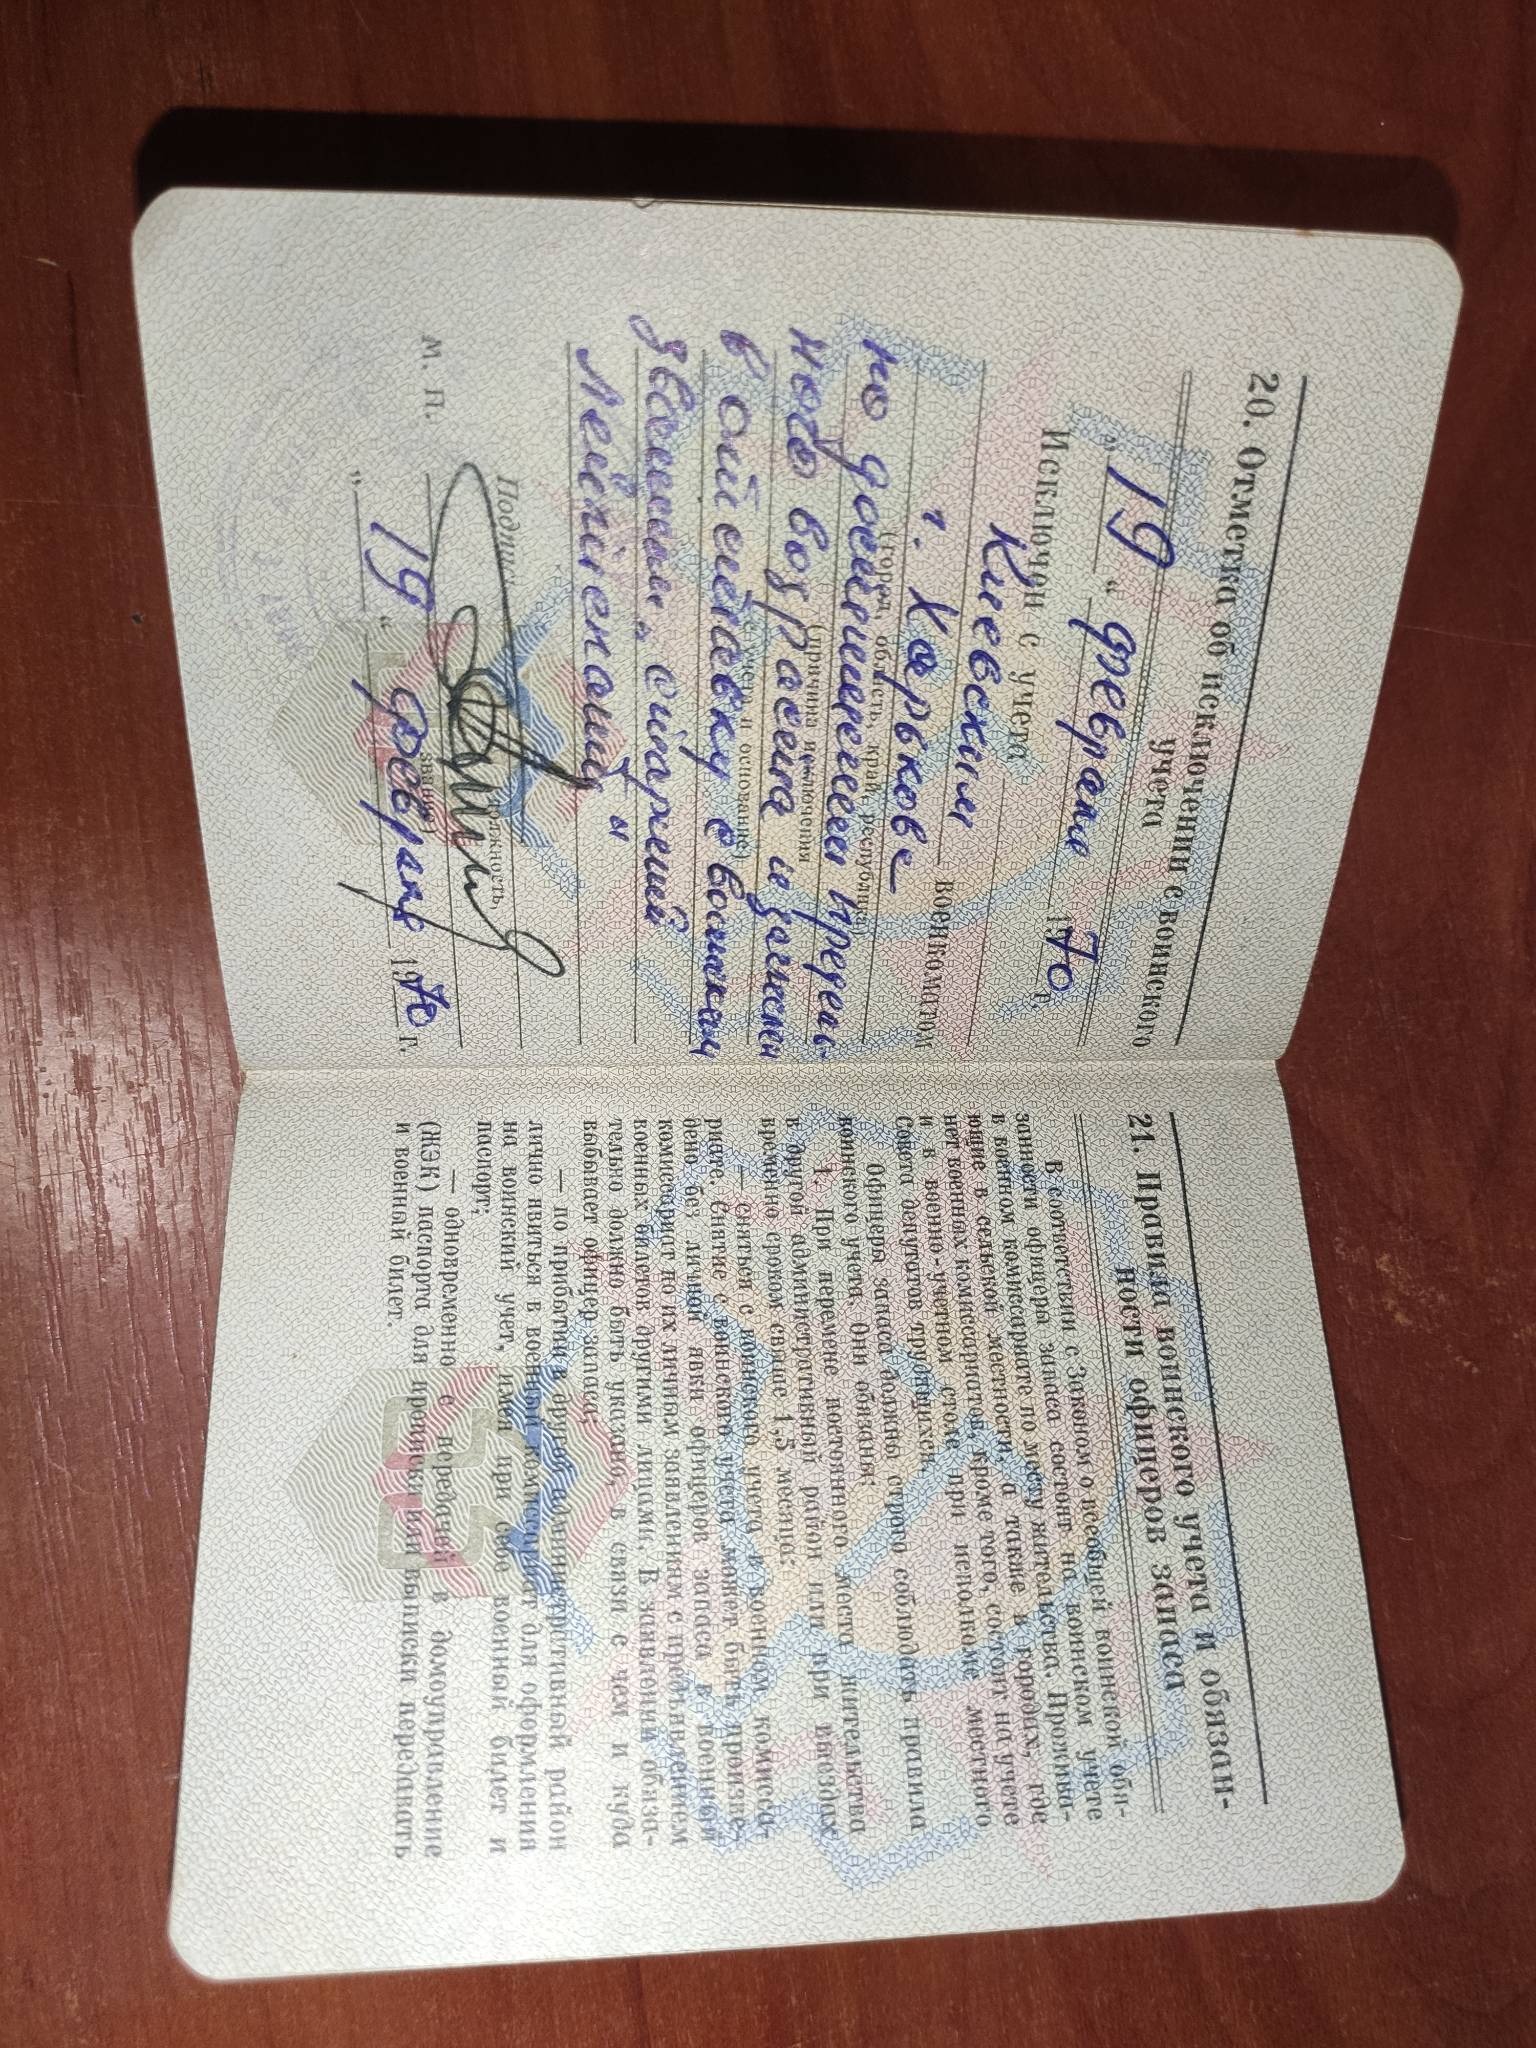 20. Отметка об исключении с воинского
учета
„ 19 “ февраля 1970 г.
Исключен с учета
Киевским военкоматом
г. Харькова
(город, область, край, республика)
по достижении предель-
(причина исключения
ного возраста и зачислен
с учета и основание)
в отставку с воинским
званием „старший
лейтенант“
Подпись
должность,
звание)
М. П.
„ 19 “ февраля 1970 г.
21. Правила воинского учета и обязан-
ности офицеров запаса
В соответствии с Законом о всеобщей воинской обя-
занности офицеры запаса состоят на воинском учете
в военном комиссариате по месту жительства. Прожива-
ющие в сельской местности, а также в городах, где
нет военных комиссариатов, кроме того, состоят на учете
и в военно-учетном столе при исполкоме местного
Совета депутатов трудящихся.
Офицеры запаса должны строго соблюдать правила
воинского учета. Они обязаны:
1. При перемене постоянного места жительства
в другой административный район или при выездах
временно сроком свыше 1,5 месяца:
— сняться с воинского учета в военном комисса-
риате. Снятие с воинского учета может быть произве-
дено без личной явки офицеров запаса в военный
комиссариат по их личным заявлениям с предъявлением
военных билетов другими лицами. В заявлении обяза-
тельно должно быть указано, в связи с чем и куда
выбывает офицер запаса;
— по прибытии в другой административный район
лично явиться в военный комиссариат для оформления
на воинский учет, имея при себе военный билет и
паспорт;
— одновременно с передачей в домоуправление
(ЖЭК) паспорта для прописки или выписки передавать
и военный билет.